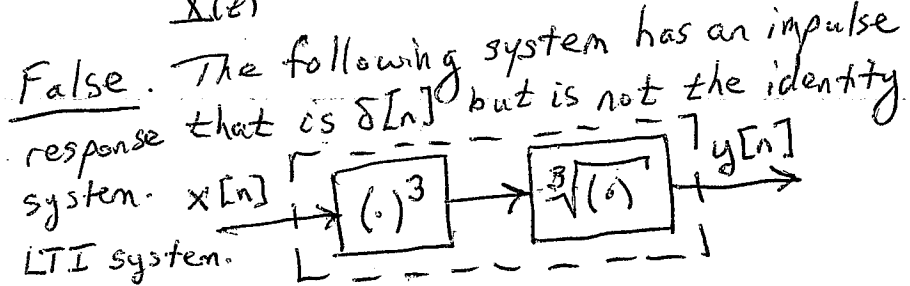 X(z)
False. The following system has an impulse
response that is δ[n] but is not the identity
system. x[n] (·)³ ∛(·) y[n]
LTI system.